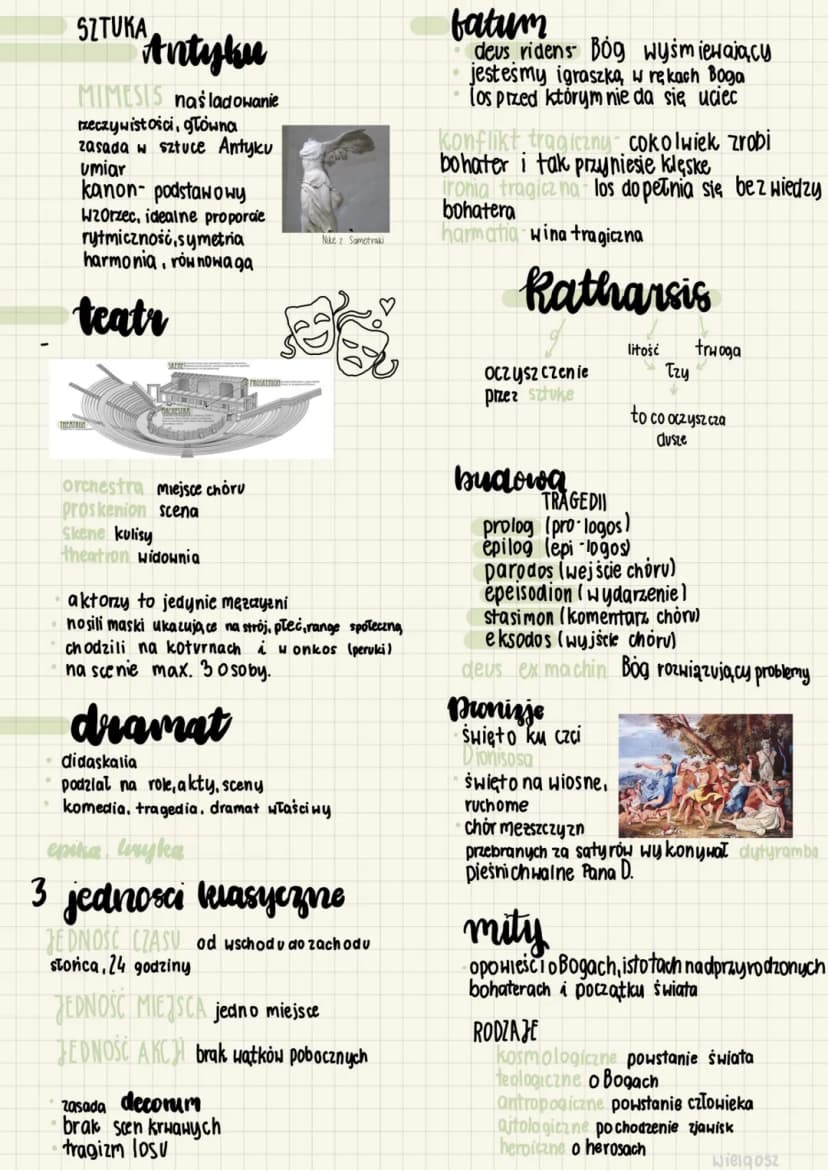 SZTUKA
Antyku
MIMESIS naśladowanie
rzeczywistości, główna
zasada w sztuce Antyku
umiar
kanon- podstawowy
wzorzec, idealne proporcje
rytmiczność, symetria
harmonia, równowaga
Nike z Samotraki
teatr
SKENE
PROSKENION
ORCHESTRA
THEATRON
orchestra miejsce chóru
proskenion scena
skene kulisy
theatron widownia
aktorzy to jedynie mężczyźni
nosili maski ukazujące nastrój, płeć, range społeczną
chodzili na koturnach i w onkos (peruki)
na scenie max. 3 osoby.
dramat
didaskalia
podział na role, akty, sceny
komedia, tragedia, dramat właściwy
epika, liryka
3 jedności klasyczne
JEDNOŚĆ CZASU od wschodu do zachodu
słońca, 24 godziny
JEDNOŚĆ MIEJSCA jedno miejsce
JEDNOŚĆ AKCJI brak wątków pobocznych
zasada decorum
brak scen krwawych
tragizm losu
fatum
deus ridens- Bóg wyśmiewający
jesteśmy igraszką w rękach Boga
los przed którym nie da się uciec
konflikt tragiczny- cokolwiek zrobi
bohater i tak przyniesie klęskę
ironia tragiczna- los dopełnia się bez wiedzy
bohatera
harmatia- wina tragiczna
Katharsis
oczyszczenie
przez sztukę
litość trwoga
łzy
to co oczyszcza
dusze
budowa
TRAGEDII
prolog (pro-logos)
epilog (epi-logos)
parodos (wejście chóru)
epeisodion (wydarzenie)
stasimon (komentarz chóru)
eksodos (wyjście chóru)
deus ex machin Bóg rozwiązujący problemy
Dionizje
święto ku czci
Dionisosa
święto na wiosne,
ruchome
chór męszczyzn
przebranych za satyrów wykonywał dytyramba
pieśni chwalne Pana D.
mity
opowieści o Bogach, istotach nadprzyrodzonych
bohaterach i początku świata
RODZAJE
kosmologiczne powstanie świata
teologiczne o Bogach
antropogiczne powstanie człowieka
ajtologiczne pochodzenie zjawisk
heroiczne o herosach
wielgosz